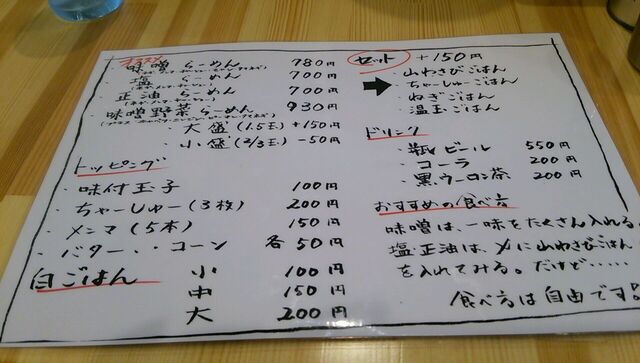 オススメ
・味噌 らーめん 780円
・塩 らーめん 700円
・正油 らーめん 700円
・味噌野菜らーめん 930円
・大盛(1.5玉) +150円
・小盛(2/3玉) -50円
トッピング
・味付玉子 100円
・ちゃーしゅー(3枚) 200円
・メンマ(5本) 150円
・バター・・コーン 各50円
白ごはん 小 100円
中 150円
大 200円
セット +150円
・山わさびごはん
・ちゃーしゅーごはん
・ねぎごはん
・温玉ごはん
ドリンク
・瓶ビール 550円
・コーラ 200円
・黒ウーロン茶 200円
おすすめの食べ方
味噌は、一味をたくさん入れる。
塩・正油は、〆に山わさびごはん
を入れてみる。だけど・・・・・
食べ方は自由です!